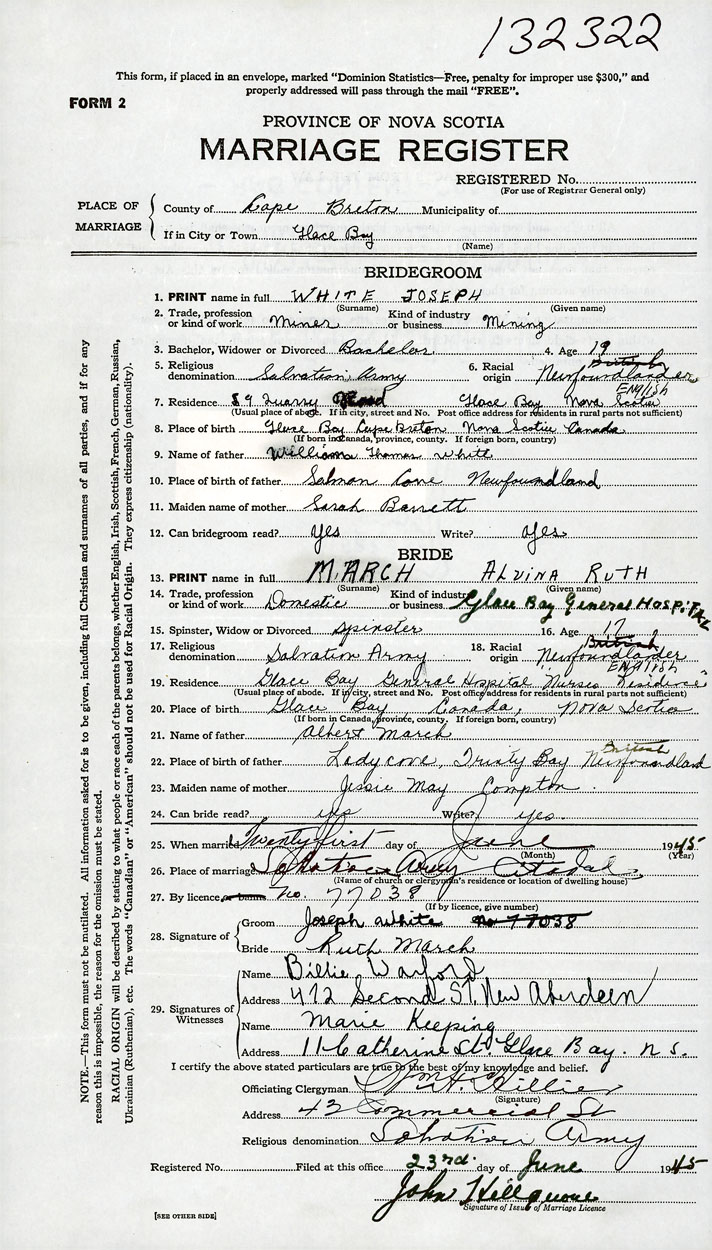 132322
This form, if placed in an envelope, marked "Dominion Statistics—Free, penalty for improper use $300," and
properly addressed will pass through the mail "FREE".
FORM 2
PROVINCE OF NOVA SCOTIA
MARRIAGE REGISTER
REGISTERED No.
(For use of Registrar General only)
PLACE OF MARRIAGE
County of Cape Breton Municipality of
If in City or Town Glace Bay
(Name)
BRIDEGROOM
1. PRINT name in full WHITE JOSEPH
(Surname) (Given name)
2. Trade, profession or kind of work Miner Kind of industry or business Mining
3. Bachelor, Widower or Divorced Bachelor 4. Age 19
5. Religious denomination Salvation Army 6. Racial origin British Newfoundlander
ENGLISH
7. Residence 89 Quarry Road Glace Bay Nova Scotia
(Usual place of abode. If in city, street and No. Post office address for residents in rural parts not sufficient)
8. Place of birth Glace Bay Cape Breton Nova Scotia Canada
(If born in Canada, province, county. If foreign born, country)
9. Name of father William Thomas White
10. Place of birth of father Salmon Cove Newfoundland
11. Maiden name of mother Sarah Barrett
12. Can bridegroom read? yes Write? yes
BRIDE
13. PRINT name in full MARCH ALVINA RUTH
(Surname) (Given name)
14. Trade, profession or kind of work Domestic Kind of industry or business Glace Bay General HOSPITAL
15. Spinster, Widow or Divorced spinster 16. Age 17
17. Religious denomination Salvation Army 18. Racial origin British Newfoundlander
ENGLISH
19. Residence Glace Bay General Hospital Nurses Residence
(Usual place of abode. If in city, street and No. Post office address for residents in rural parts not sufficient)
20. Place of birth Glace Bay, Canada, Nova Scotia
(If born in Canada, province, county. If foreign born, country)
21. Name of father Albert March
British
22. Place of birth of father Ladycove, Trinity Bay Newfoundland
23. Maiden name of mother Jessie May Compton
24. Can bride read? yes Write? yes.
25. When married Twenty first day of June 1945
(Month) (Year)
26. Place of marriage Salvation Army Citadel
(Name of church or clergyman's residence or location of dwelling house)
27. By licence No. 77038
(If by licence, give number)
28. Signature of
Groom Joseph White No 77038
Bride Ruth March
29. Signatures of Witnesses
Name Billie Warford
Address 472 Second St. New Aberdeen
Name Marie Keeping
Address 11 Catherine St. Glace Bay. N.S.
I certify the above stated particulars are true to the best of my knowledge and belief.
Officiating Clergyman Hillier
(Signature)
Address 43 Commercial St
Religious denomination Salvation Army
Registered No. Filed at this office 23rd. day of June 1945
John
Signature of Issuer of Marriage Licence
[SEE OTHER SIDE]
NOTE.—This form must not be mutilated. All information asked for is to be given, including full Christian and surnames of all parties, and if for any
reason this is impossible, the reason for the omission must be stated.
RACIAL ORIGIN will be described by stating to what people or race each of the parents belongs, whether English, Irish, Scottish, French, German, Russian,
Ukrainian (Ruthenian), etc. The words "Canadian" or "American" should not be used for Racial Origin. They express citizenship (nationality).